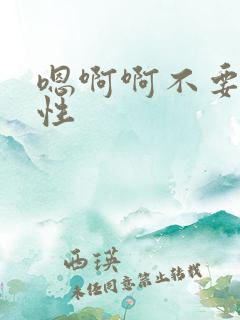 嗯啊啊不要
性
西瑛
未经同意禁止转载